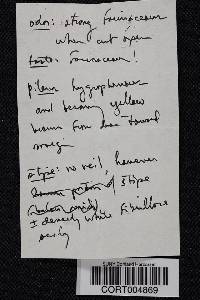 odor: strong farinaceous
when cut open
taste: farinaceous!
pileus hygrophanous
and becoming yellow
brown from disc toward
margin
stipe: no veil, however
stipe
I densely white fibrillose
SUNY Cortland Herbarium
CORT004869